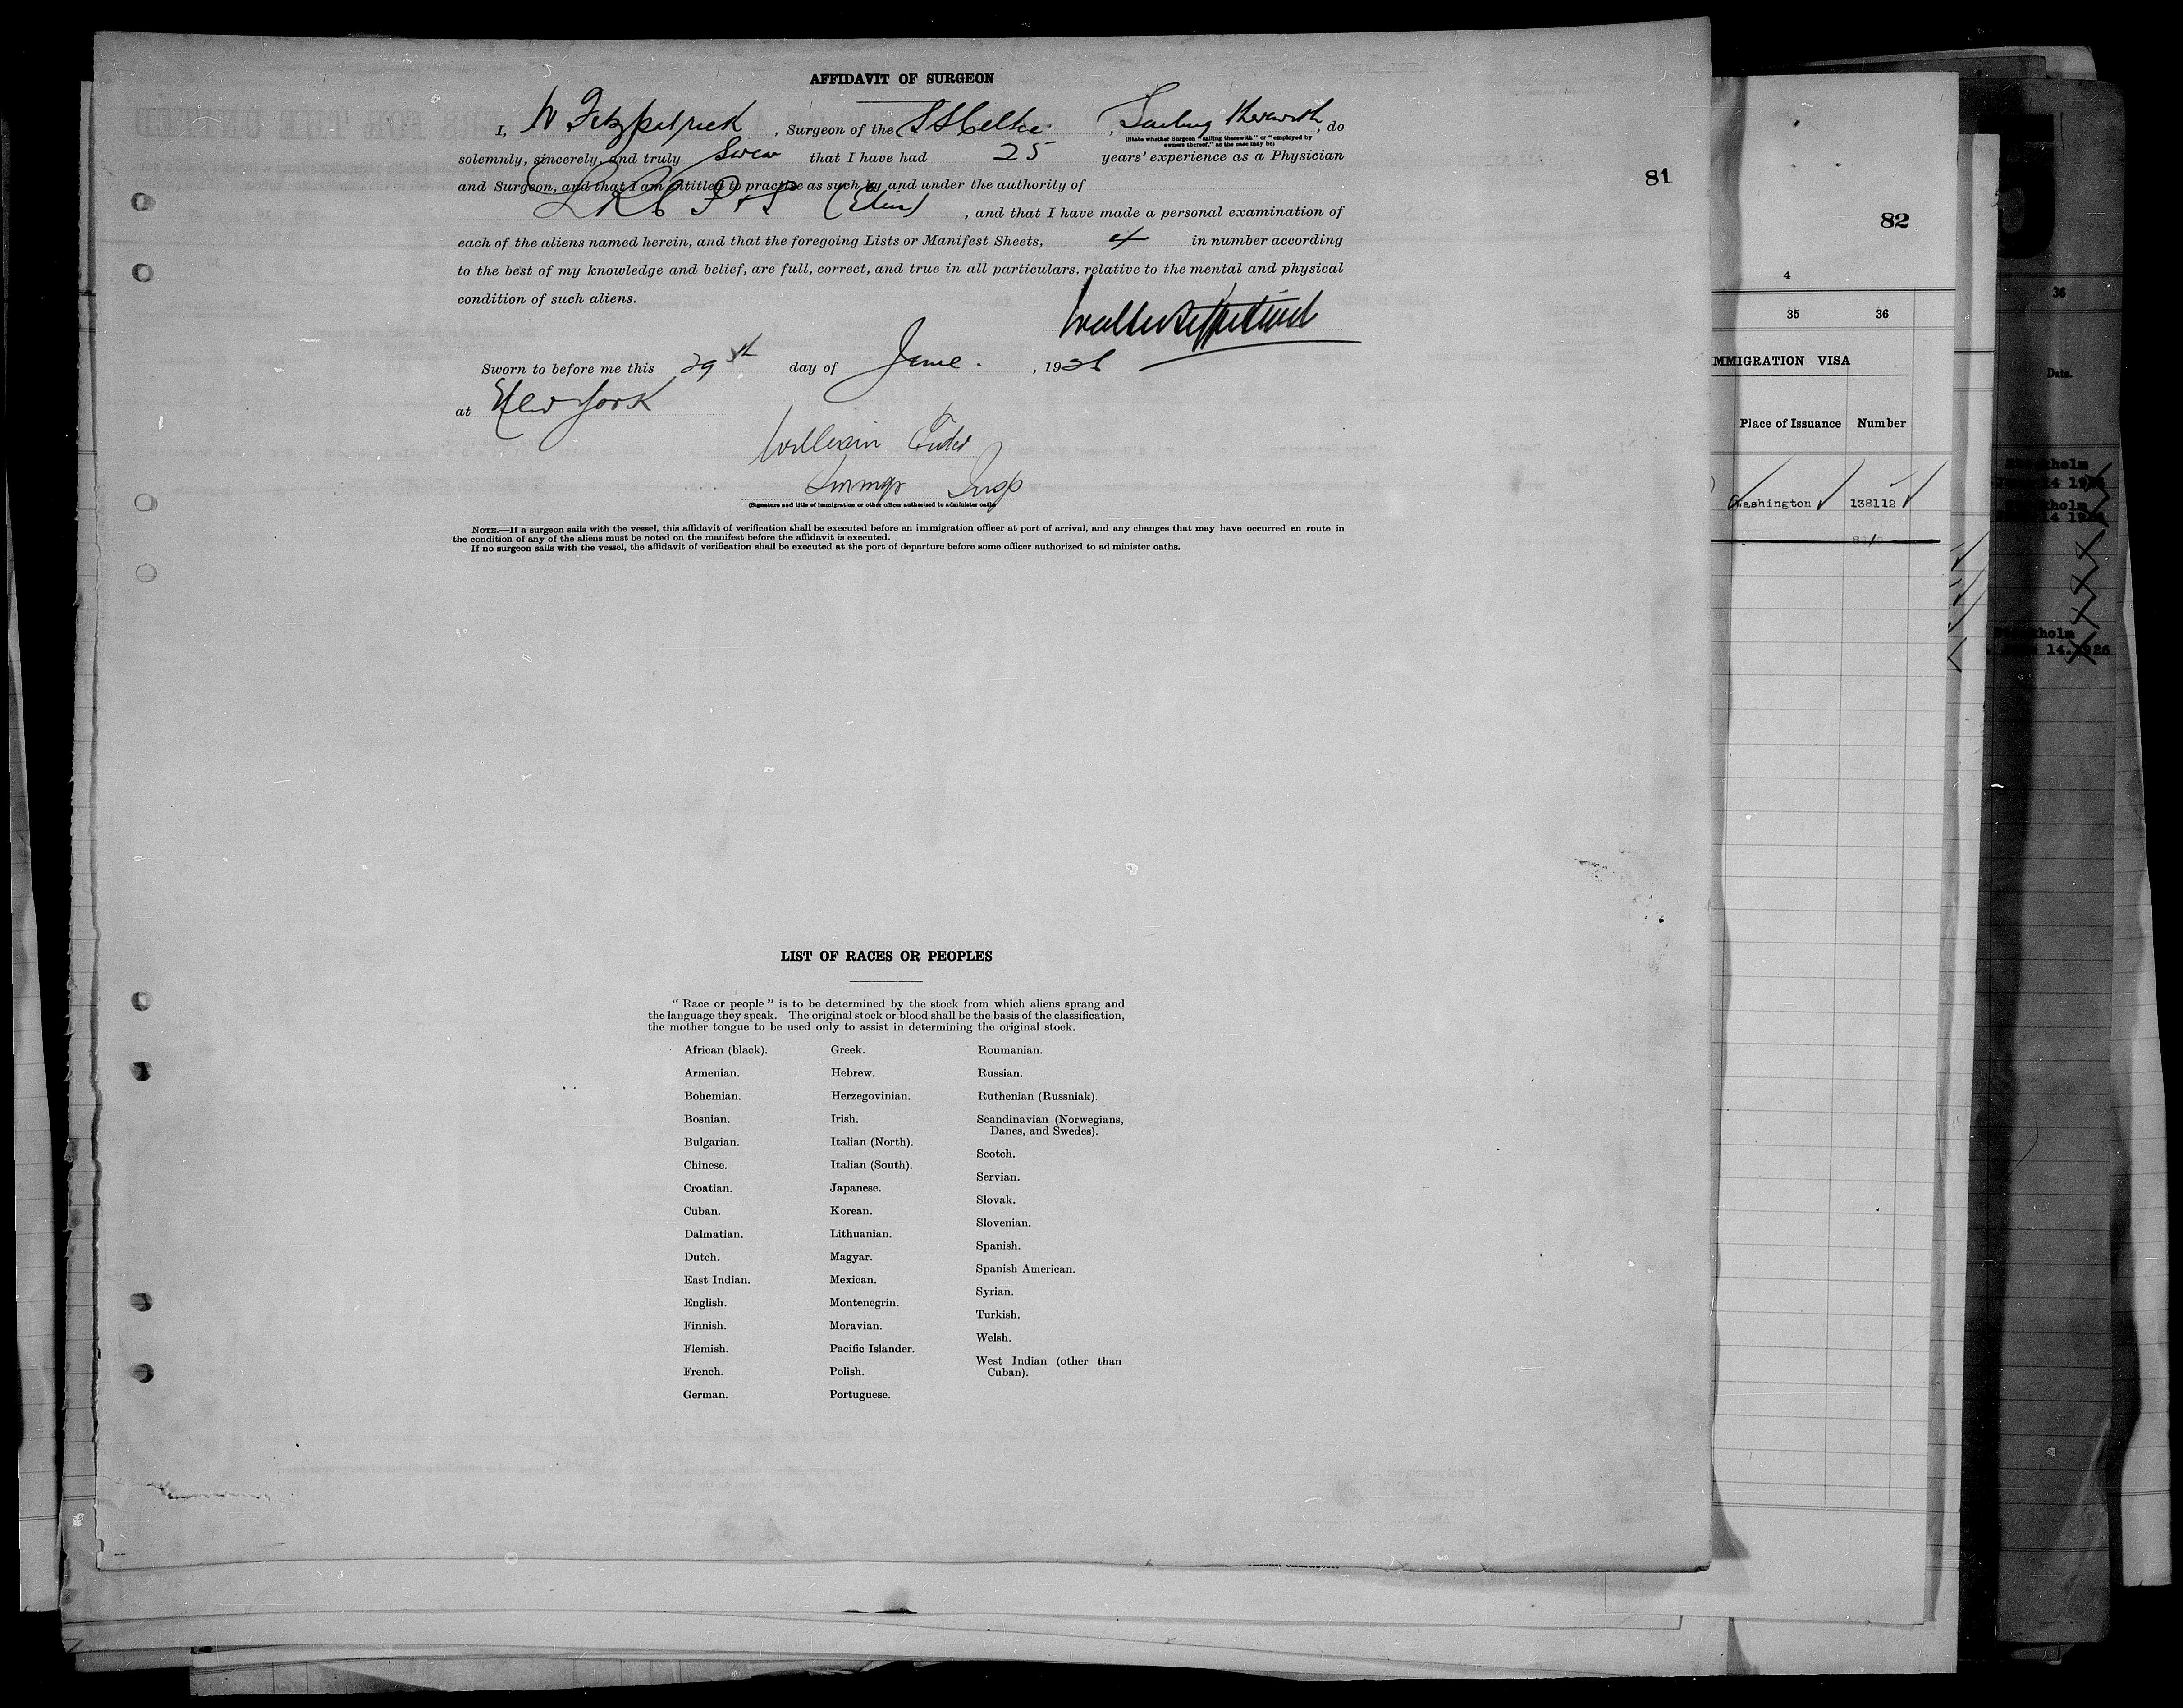 AFFIDAVIT OF SURGEON
I, W Fitzpatrick, Surgeon of the SS Celtic, Sailing therewith, do
(State whether Surgeon "sailing therewith" or "employed by
owners thereof," as the case may be)
solemnly, sincerely, and truly Swear that I have had 25 years' experience as a Physician
and Surgeon, and that I am entitled to practise as such by and under the authority of
LRC P & S (Edin), and that I have made a personal examination of
each of the aliens named herein, and that the foregoing Lists or Manifest Sheets, 4 in number according
to the best of my knowledge and belief, are full, correct, and true in all particulars, relative to the mental and physical
condition of such aliens.
Sworn to before me this 29th day of June, 1926
at New York
William
Immigr Insp
(Signature and title of immigration or other officer authorized to administer oaths)
NOTE.—If a surgeon sails with the vessel, this affidavit of verification shall be executed before an immigration officer at port of arrival, and any changes that may have occurred en route in
the condition of any of the aliens must be noted on the manifest before the affidavit is executed.
If no surgeon sails with the vessel, the affidavit of verification shall be executed at the port of departure before some officer authorized to ad minister oaths.
LIST OF RACES OR PEOPLES
"Race or people" is to be determined by the stock from which aliens sprang and
the language they speak. The original stock or blood shall be the basis of the classification,
the mother tongue to be used only to assist in determining the original stock.
African (black).
Armenian.
Bohemian.
Bosnian.
Bulgarian.
Chinese.
Croatian.
Cuban.
Dalmatian.
Dutch.
East Indian.
English.
Finnish.
Flemish.
French.
German.
Greek.
Hebrew.
Herzegovinian.
Irish.
Italian (North).
Italian (South).
Japanese.
Korean.
Lithuanian.
Magyar.
Mexican.
Montenegrin.
Moravian.
Pacific Islander.
Polish.
Portuguese.
Roumanian.
Russian.
Ruthenian (Russniak).
Scandinavian (Norwegians,
Danes, and Swedes).
Scotch.
Servian.
Slovak.
Slovenian.
Spanish.
Spanish American.
Syrian.
Turkish.
Welsh.
West Indian (other than
Cuban).
81
82
4
35 36
IMMIGRATION VISA
Place of Issuance Number
Washington 138112
36
Date.
14 1926
14 1926
14.1926